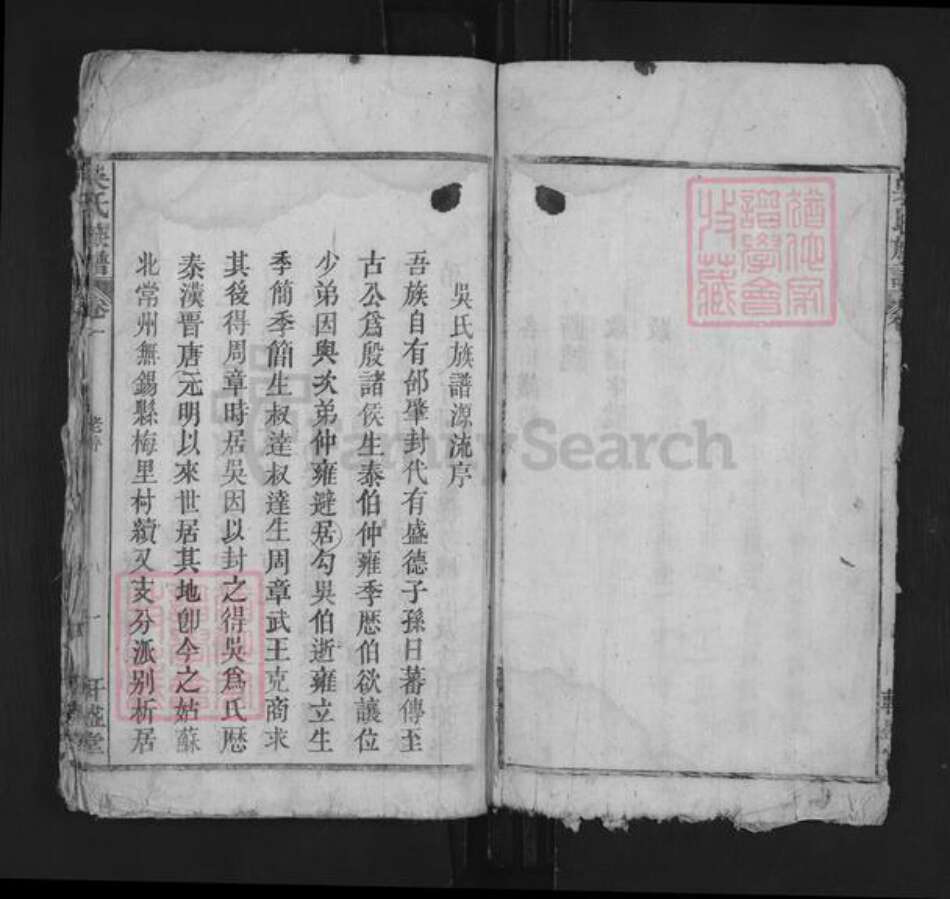 吳氏族譜源流序
吾族自有邰肇封代有盛德子孫日蕃傳至
古公爲殷諸侯生泰伯仲雍季歷伯欲讓位
少弟因與次弟仲雍避居勾吳伯逝雍立生
季簡季簡生叔達叔達生周章武王克商求
其後得周章時居吳因以封之得吳爲氏歷
秦漢晋唐元明以來世居其地卽今之姑蘇
北常州無錫縣梅里村續又支分派别析居
吳氏族譜
卷一
老序
一
堂
FamilySearch
猶他家
譜學會
收藏